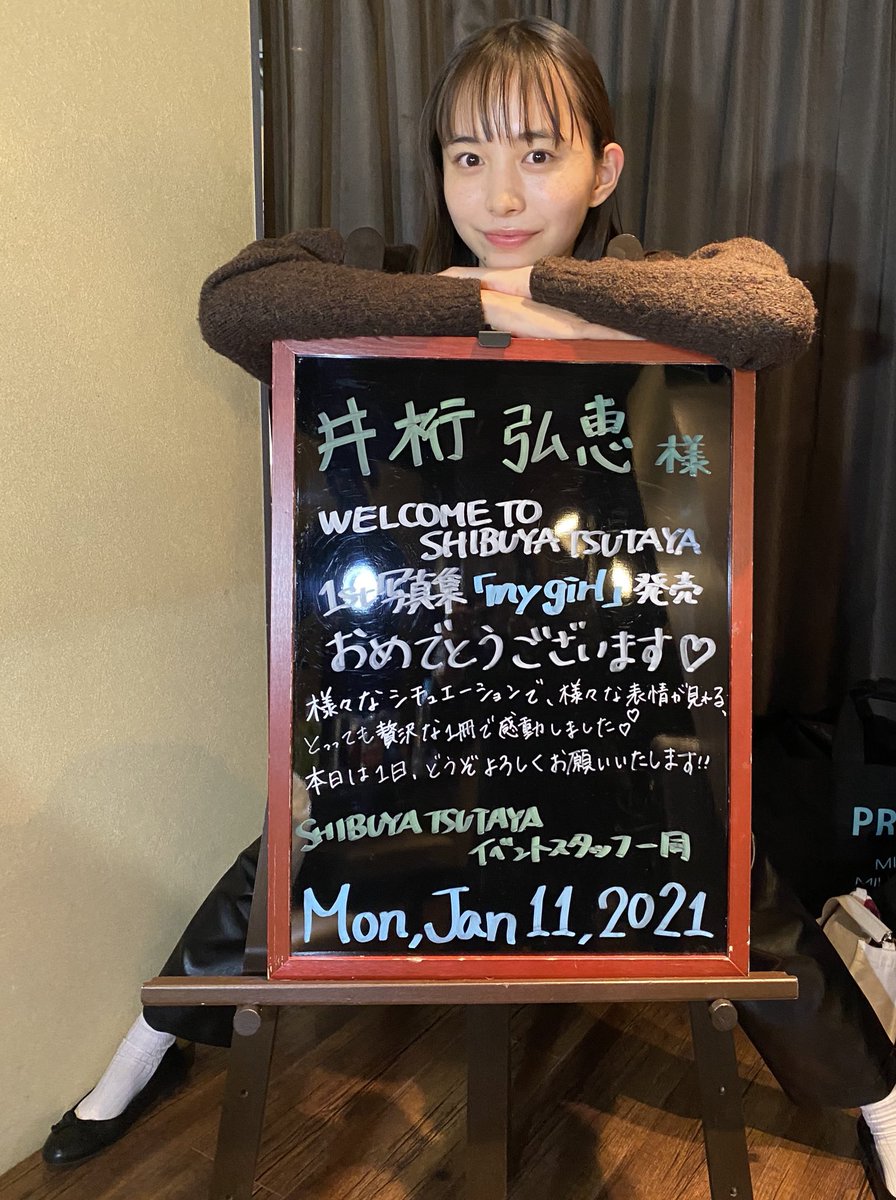 井桁 弘恵 様
WELCOME TO
SHIBUYA TSUTAYA
1st写真集「my girl」発売
おめでとうございます♡
様々なシチュエーションで、様々な表情が見れる、
とっっても贅沢な1冊で感動しました♡
本日は1日、どうぞよろしくお願いいたします!!
SHIBUYA TSUTAYA
イベントスタッフ一同
Mon,Jan 11,2021
PR